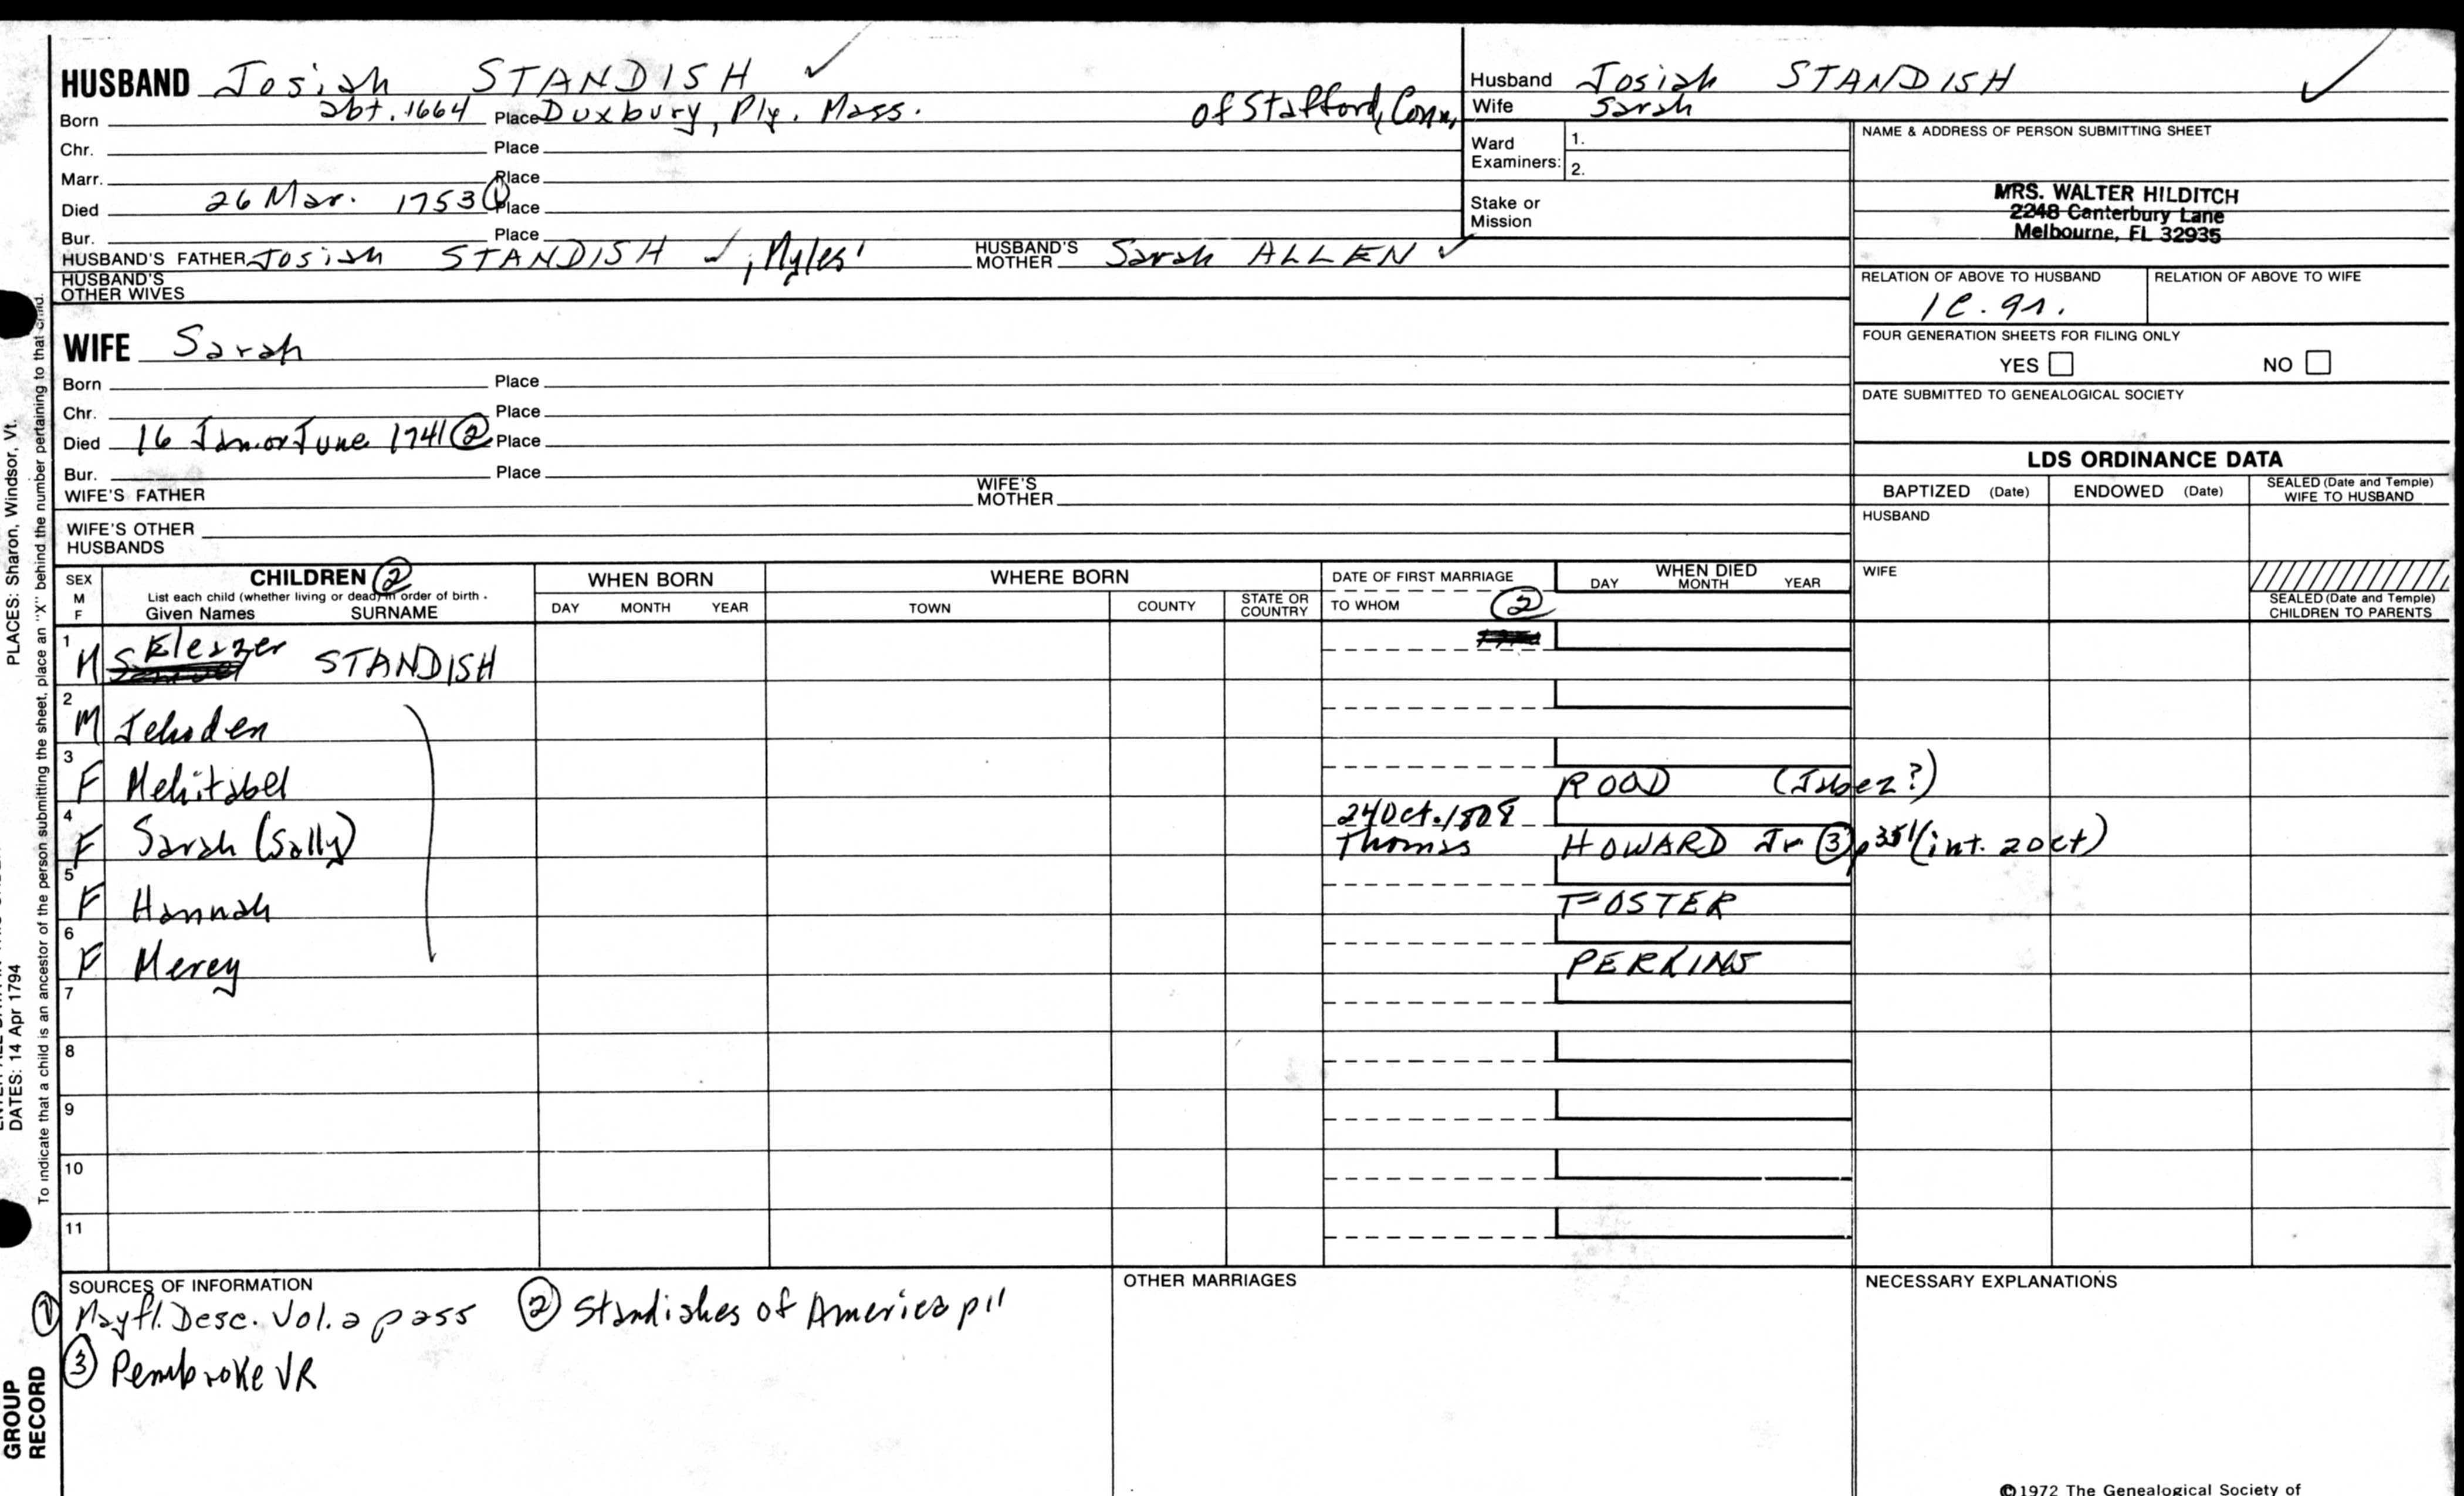 HUSBAND Josiah STANDISH ✓
Born abt. 1664 Place Duxbury, Ply. Mass. of Stafford, Conn.
Chr. Place
Marr. Place
Died 26 Mar. 1753 ① Place
Bur. Place
HUSBAND'S FATHER Josiah STANDISH ✓, Myles' HUSBAND'S MOTHER Sarah ALLEN ✓
HUSBAND'S OTHER WIVES
Husband Josiah STANDISH ✓
Wife Sarah
Ward Examiners: 1.
2.
Stake or Mission
NAME & ADDRESS OF PERSON SUBMITTING SHEET
MRS. WALTER HILDITCH
2248 Canterbury Lane
Melbourne, FL 32935
RELATION OF ABOVE TO HUSBAND RELATION OF ABOVE TO WIFE
1C. gr.
FOUR GENERATION SHEETS FOR FILING ONLY
YES NO
DATE SUBMITTED TO GENEALOGICAL SOCIETY
WIFE Sarah
Born Place
Chr. Place
Died 16 Jan. or June 1741 ② Place
Bur. Place
WIFE'S FATHER WIFE'S MOTHER
WIFE'S OTHER HUSBANDS
LDS ORDINANCE DATA
BAPTIZED (Date) ENDOWED (Date) SEALED (Date and Temple) WIFE TO HUSBAND
HUSBAND
WIFE
SEALED (Date and Temple) CHILDREN TO PARENTS
SEX M F CHILDREN ② List each child (whether living or dead) in order of birth. Given Names SURNAME
WHEN BORN DAY MONTH YEAR
WHERE BORN TOWN COUNTY STATE OR COUNTRY
DATE OF FIRST MARRIAGE TO WHOM ②
WHEN DIED DAY MONTH YEAR
1 M Eleazer STANDISH
2 M Jehoden
3 F Mehitabel ROOD (Jabez?)
4 F Sarah (Sally) 24 Oct. 1808
Thomas HOWARD Jr ③ p351 (int. 2 Oct)
5 F Hannah FOSTER
6 F Mercy PERKINS
7
8
9
10
11
SOURCES OF INFORMATION
① Mayfl. Desc. Vol. 2 p 255 ② Standishes of America p11
③ Pembroke VR
OTHER MARRIAGES
NECESSARY EXPLANATIONS
©1972 The Genealogical Society of
PLACES: Sharon, Windsor, Vt.
DATES: 14 Apr 1794
To indicate that a child is an ancestor of the person submitting the sheet, place an "X" behind the number pertaining to that child.
GROUP
RECORD